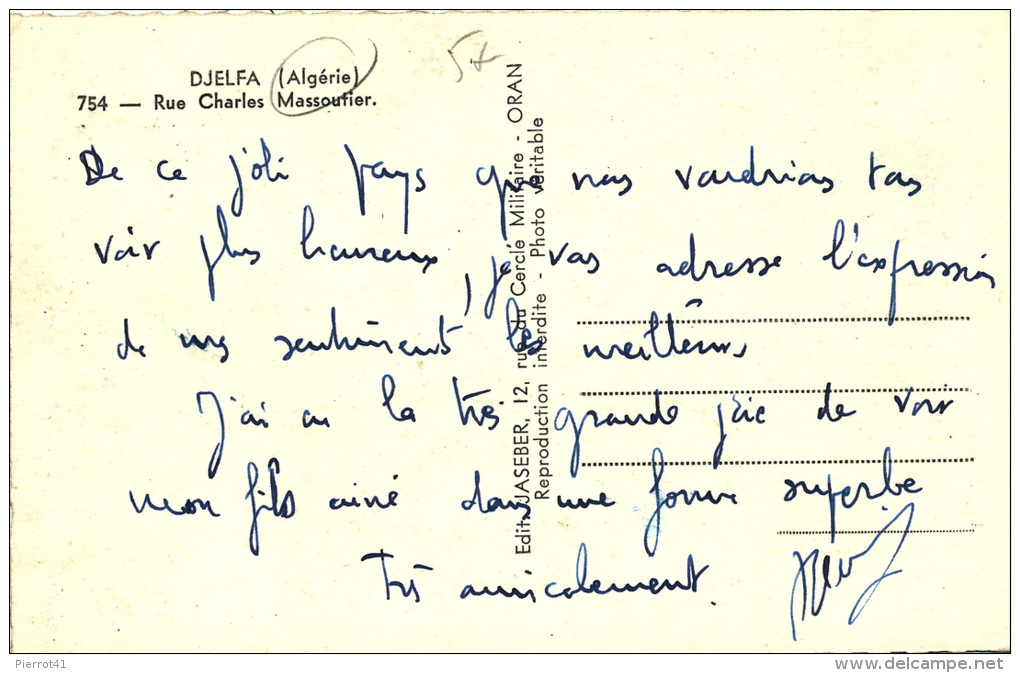 DJELFA (Algérie)
754 — Rue Charles Massoutier.
De ce joli pays que nous voudrions tous
voir plus heureux, je vous adresse l'expression
de mes sentiments les meilleurs
J'ai eu la très grande joie de voir
mon fils ainé dans une forme superbe
Très amicalement.
Edit. JASEBER, 12, rue du Cercle Militaire - ORAN
Reproduction interdite - Photo véritable
Pierrot41
www.delcampe.net